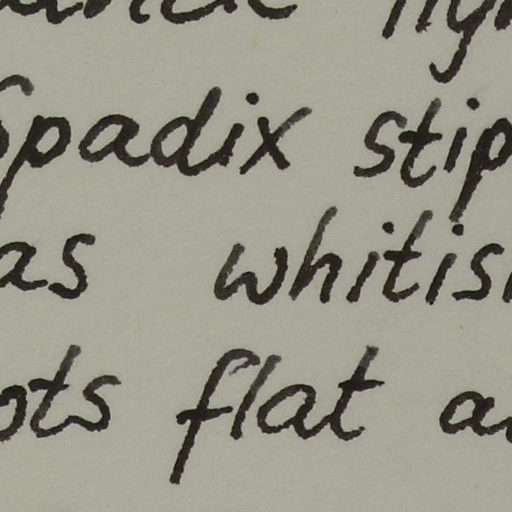 Spadix stip
as whitis
ots flat a